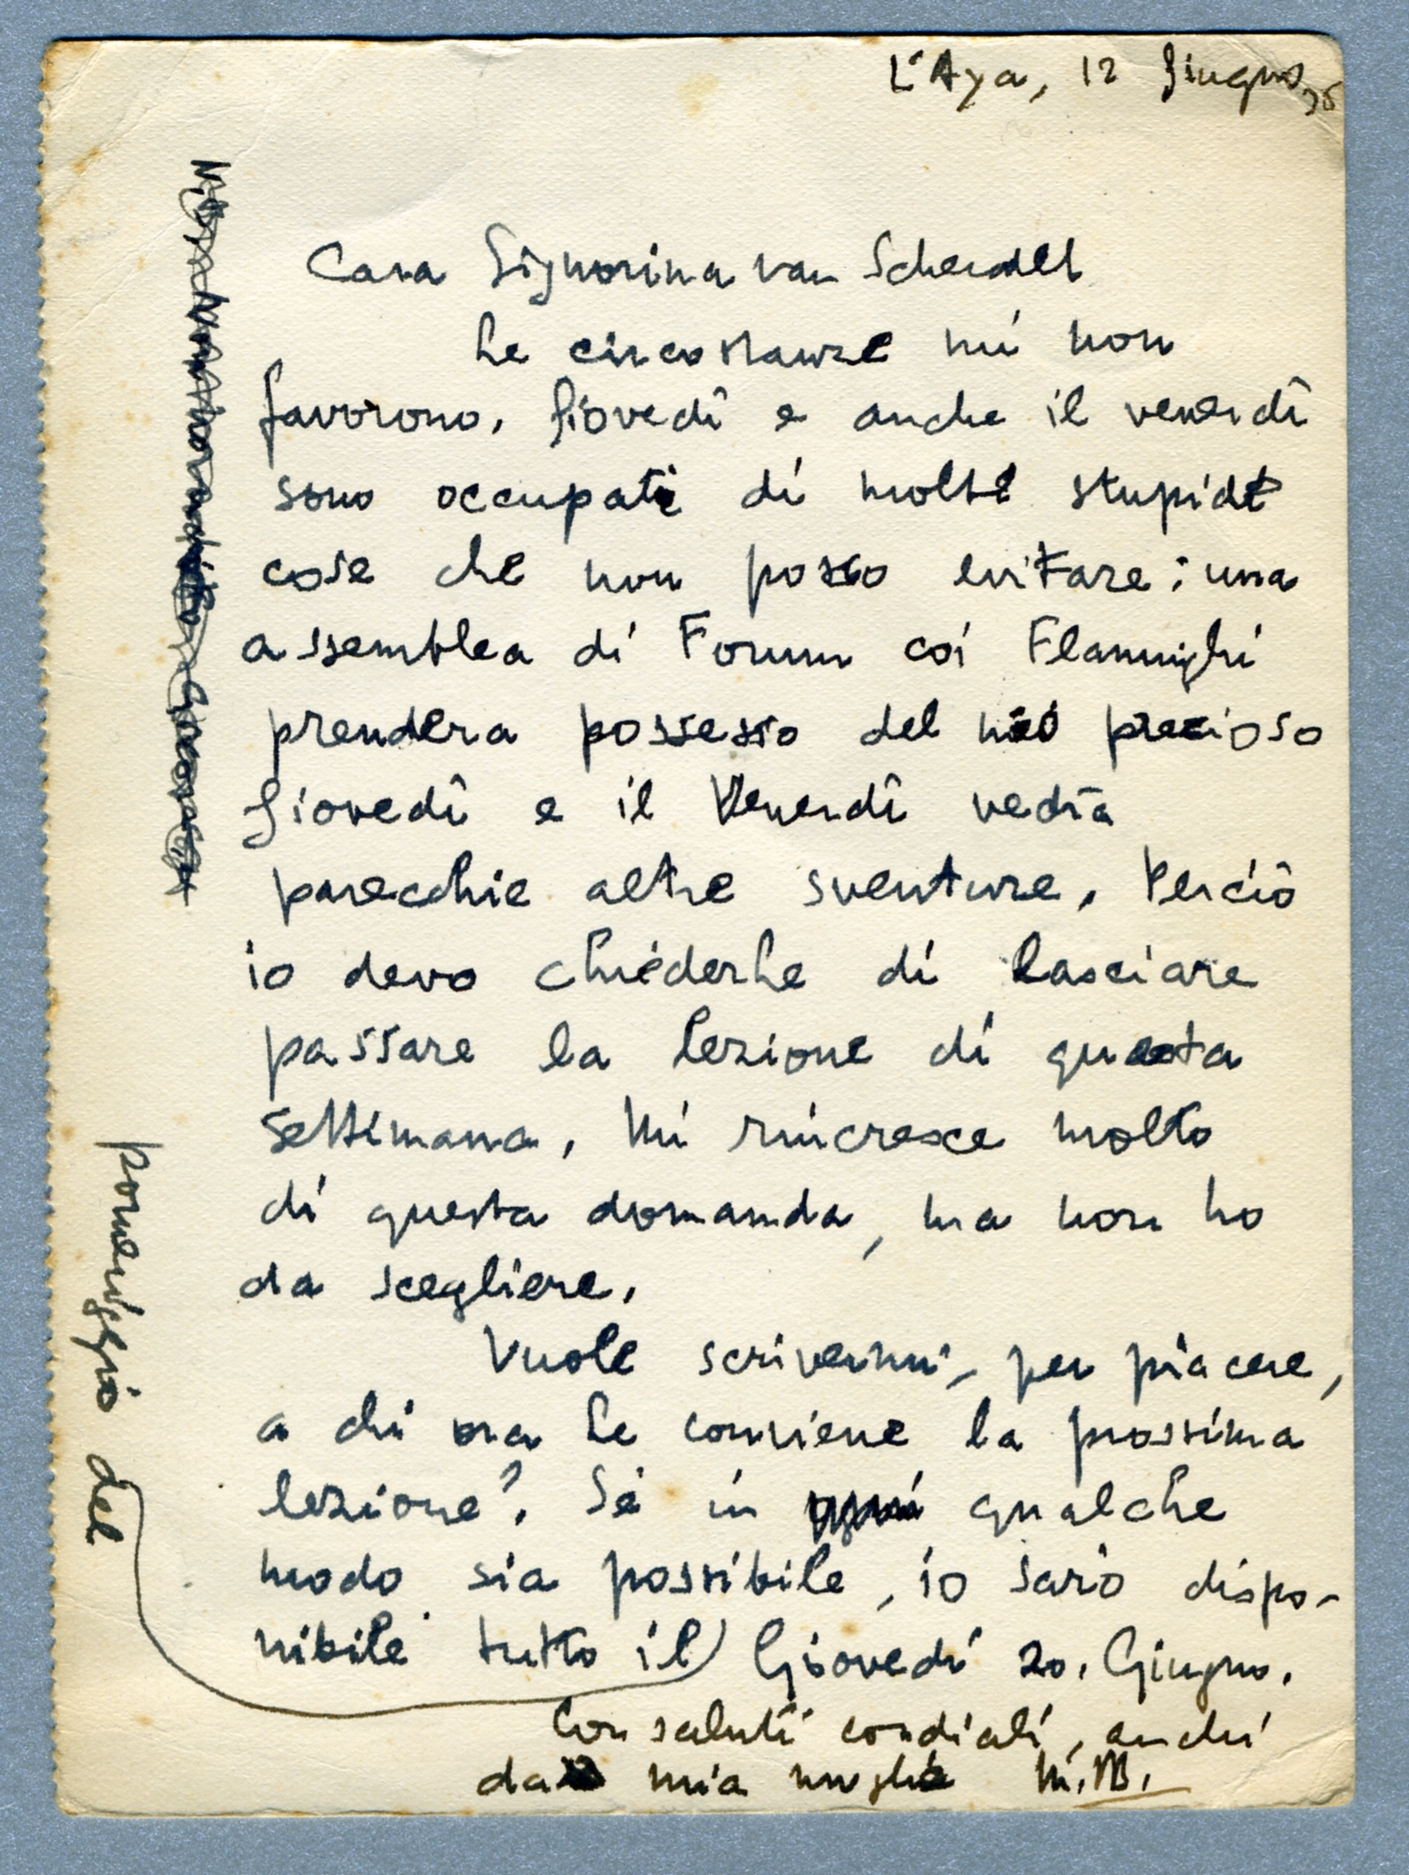 L'Aya, 12 Giugno 35
Cara Signorina van Schendel
Le circostanze mi non
favorono. Giovedî e anche il venerdî
sono occupati di molte stupide
cose che non posso evitare: una
assemblea di Forum coi Flamnighi
prendera possesso del mio prezioso
Giovedî e il Venerdî vedrà
parecchie altre sventure. Perciô
io devo chiederLe di lasciare
passare la lezione di questa
settimana. Mi rincresce molto
di questa domanda, ma non ho
da scegliere.
Vuole scrivermi, per piacere,
a chi ora Le conviene la prossima
lezione?. Se in qualche
modo sia possibile, io sarò dispo-
nibile tutto il pomeriggio del Giovedi 20. Giugno.
Con saluti cordiali, anchi
da mia moglie M.B.